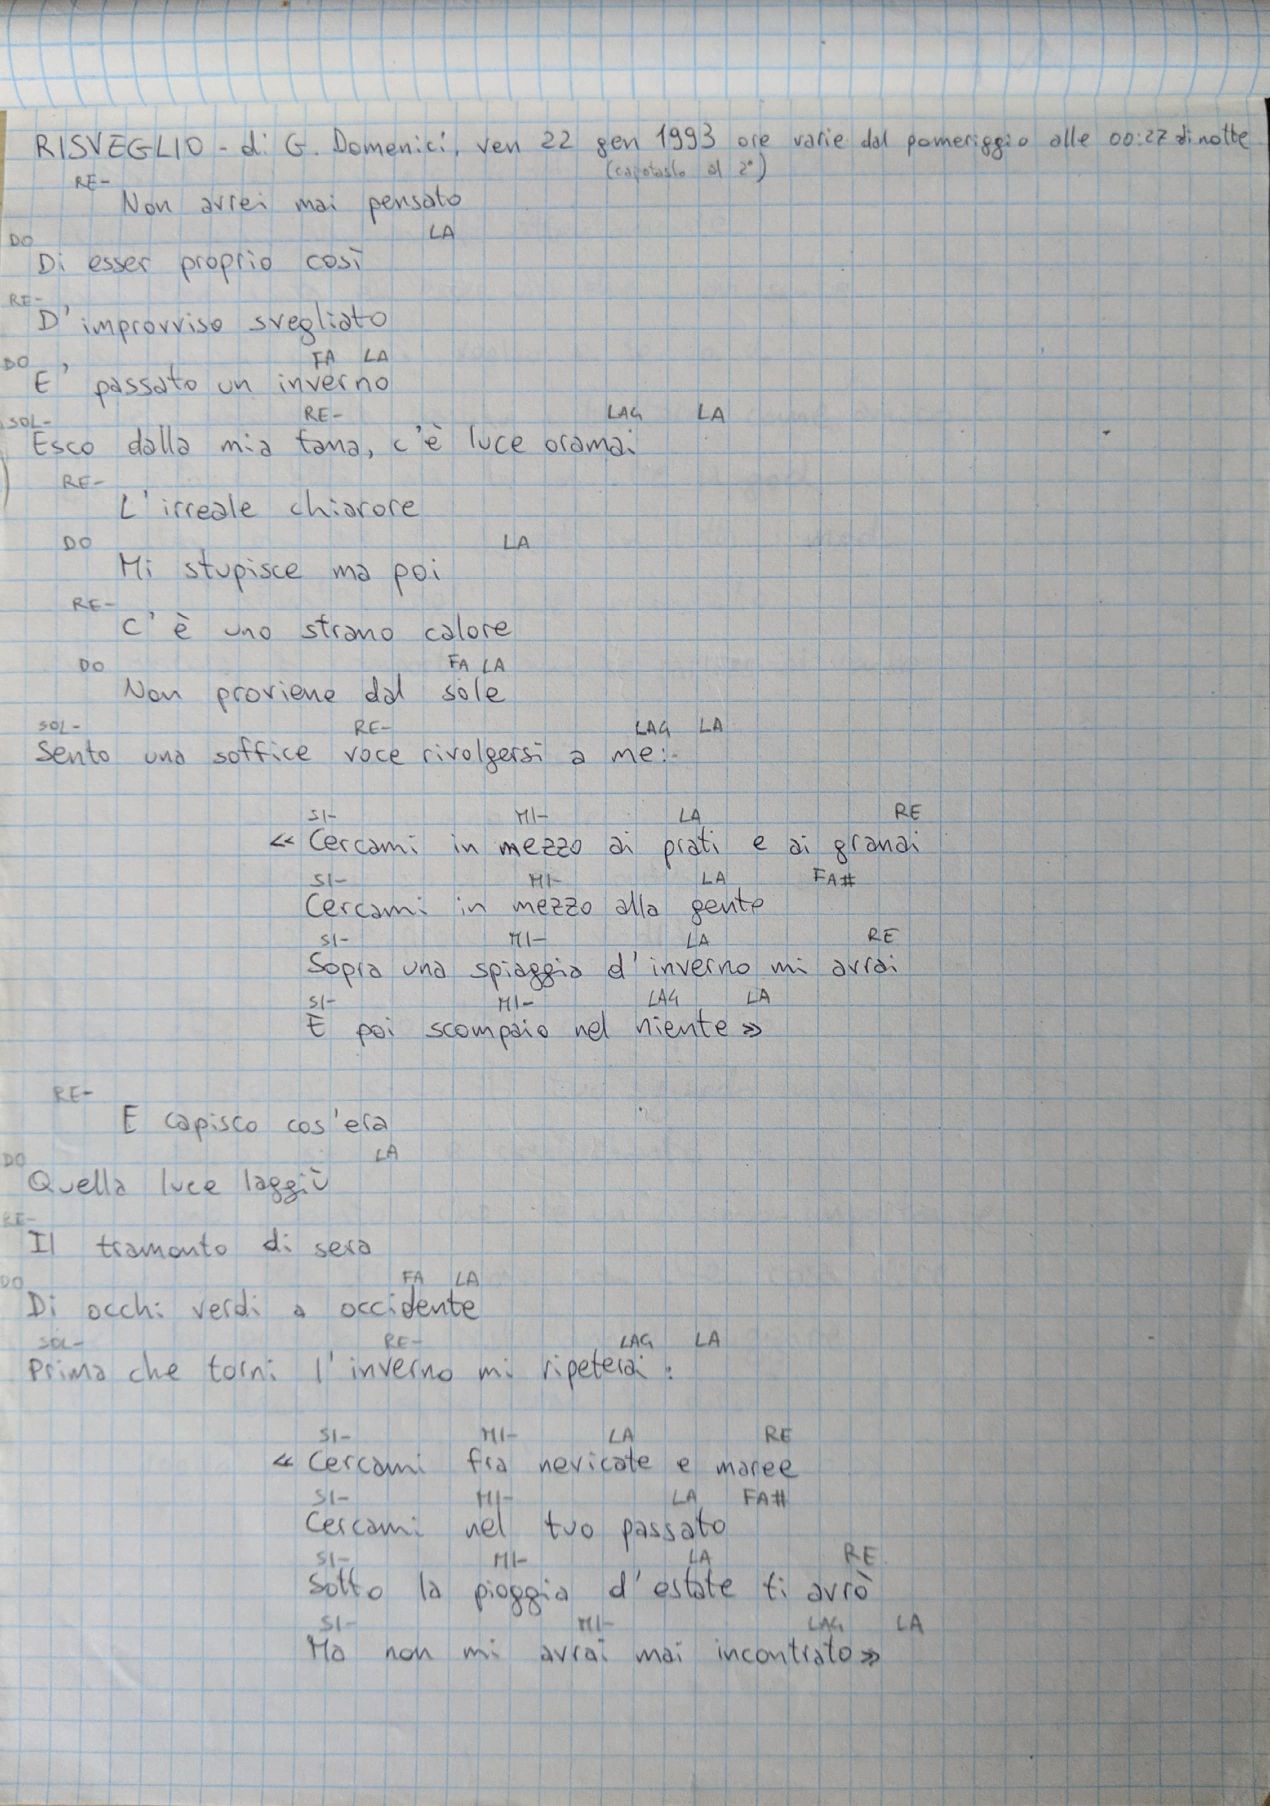 RISVEGLIO - di G. Domenici, ven 22 gen 1993 ore varie dal pomeriggio alle 00:27 di notte
(capotasto al 2°)
RE-
Non avrei mai pensato
DO LA
Di esser proprio così
RE-
D'improvviso svegliato
DO FA LA
E' passato un inverno
SOL- RE- LA4 LA
Esco dalla mia tana, c'è luce oramai
RE-
L'irreale chiarore
DO LA
Mi stupisce ma poi
RE-
C'è uno strano calore
DO FA LA
Non proviene dal sole
SOL- RE- LA4 LA
Sento una soffice voce rivolgersi a me:-
SI- MI- LA RE
« Cercami in mezzo ai prati e ai granai
SI- MI- LA FA#
Cercami in mezzo alla gente
SI- MI- LA RE
Sopra una spiaggia d'inverno mi avrai
SI- MI- LA4 LA
E poi scompaio nel niente »
RE-
E capisco cos'era
DO LA
Quella luce laggiù
RE-
Il tramonto di sera
DO FA LA
Di occhi verdi a occidente
SOL- RE- LA4 LA
Prima che torni l'inverno mi ripeterai:
SI- MI- LA RE
« Cercami fra nevicate e maree
SI- MI- LA FA#
Cercami nel tuo passato
SI- MI- LA RE
Sotto la pioggia d'estate ti avrò
SI- MI- LA4 LA
Ma non mi avrai mai incontrato »